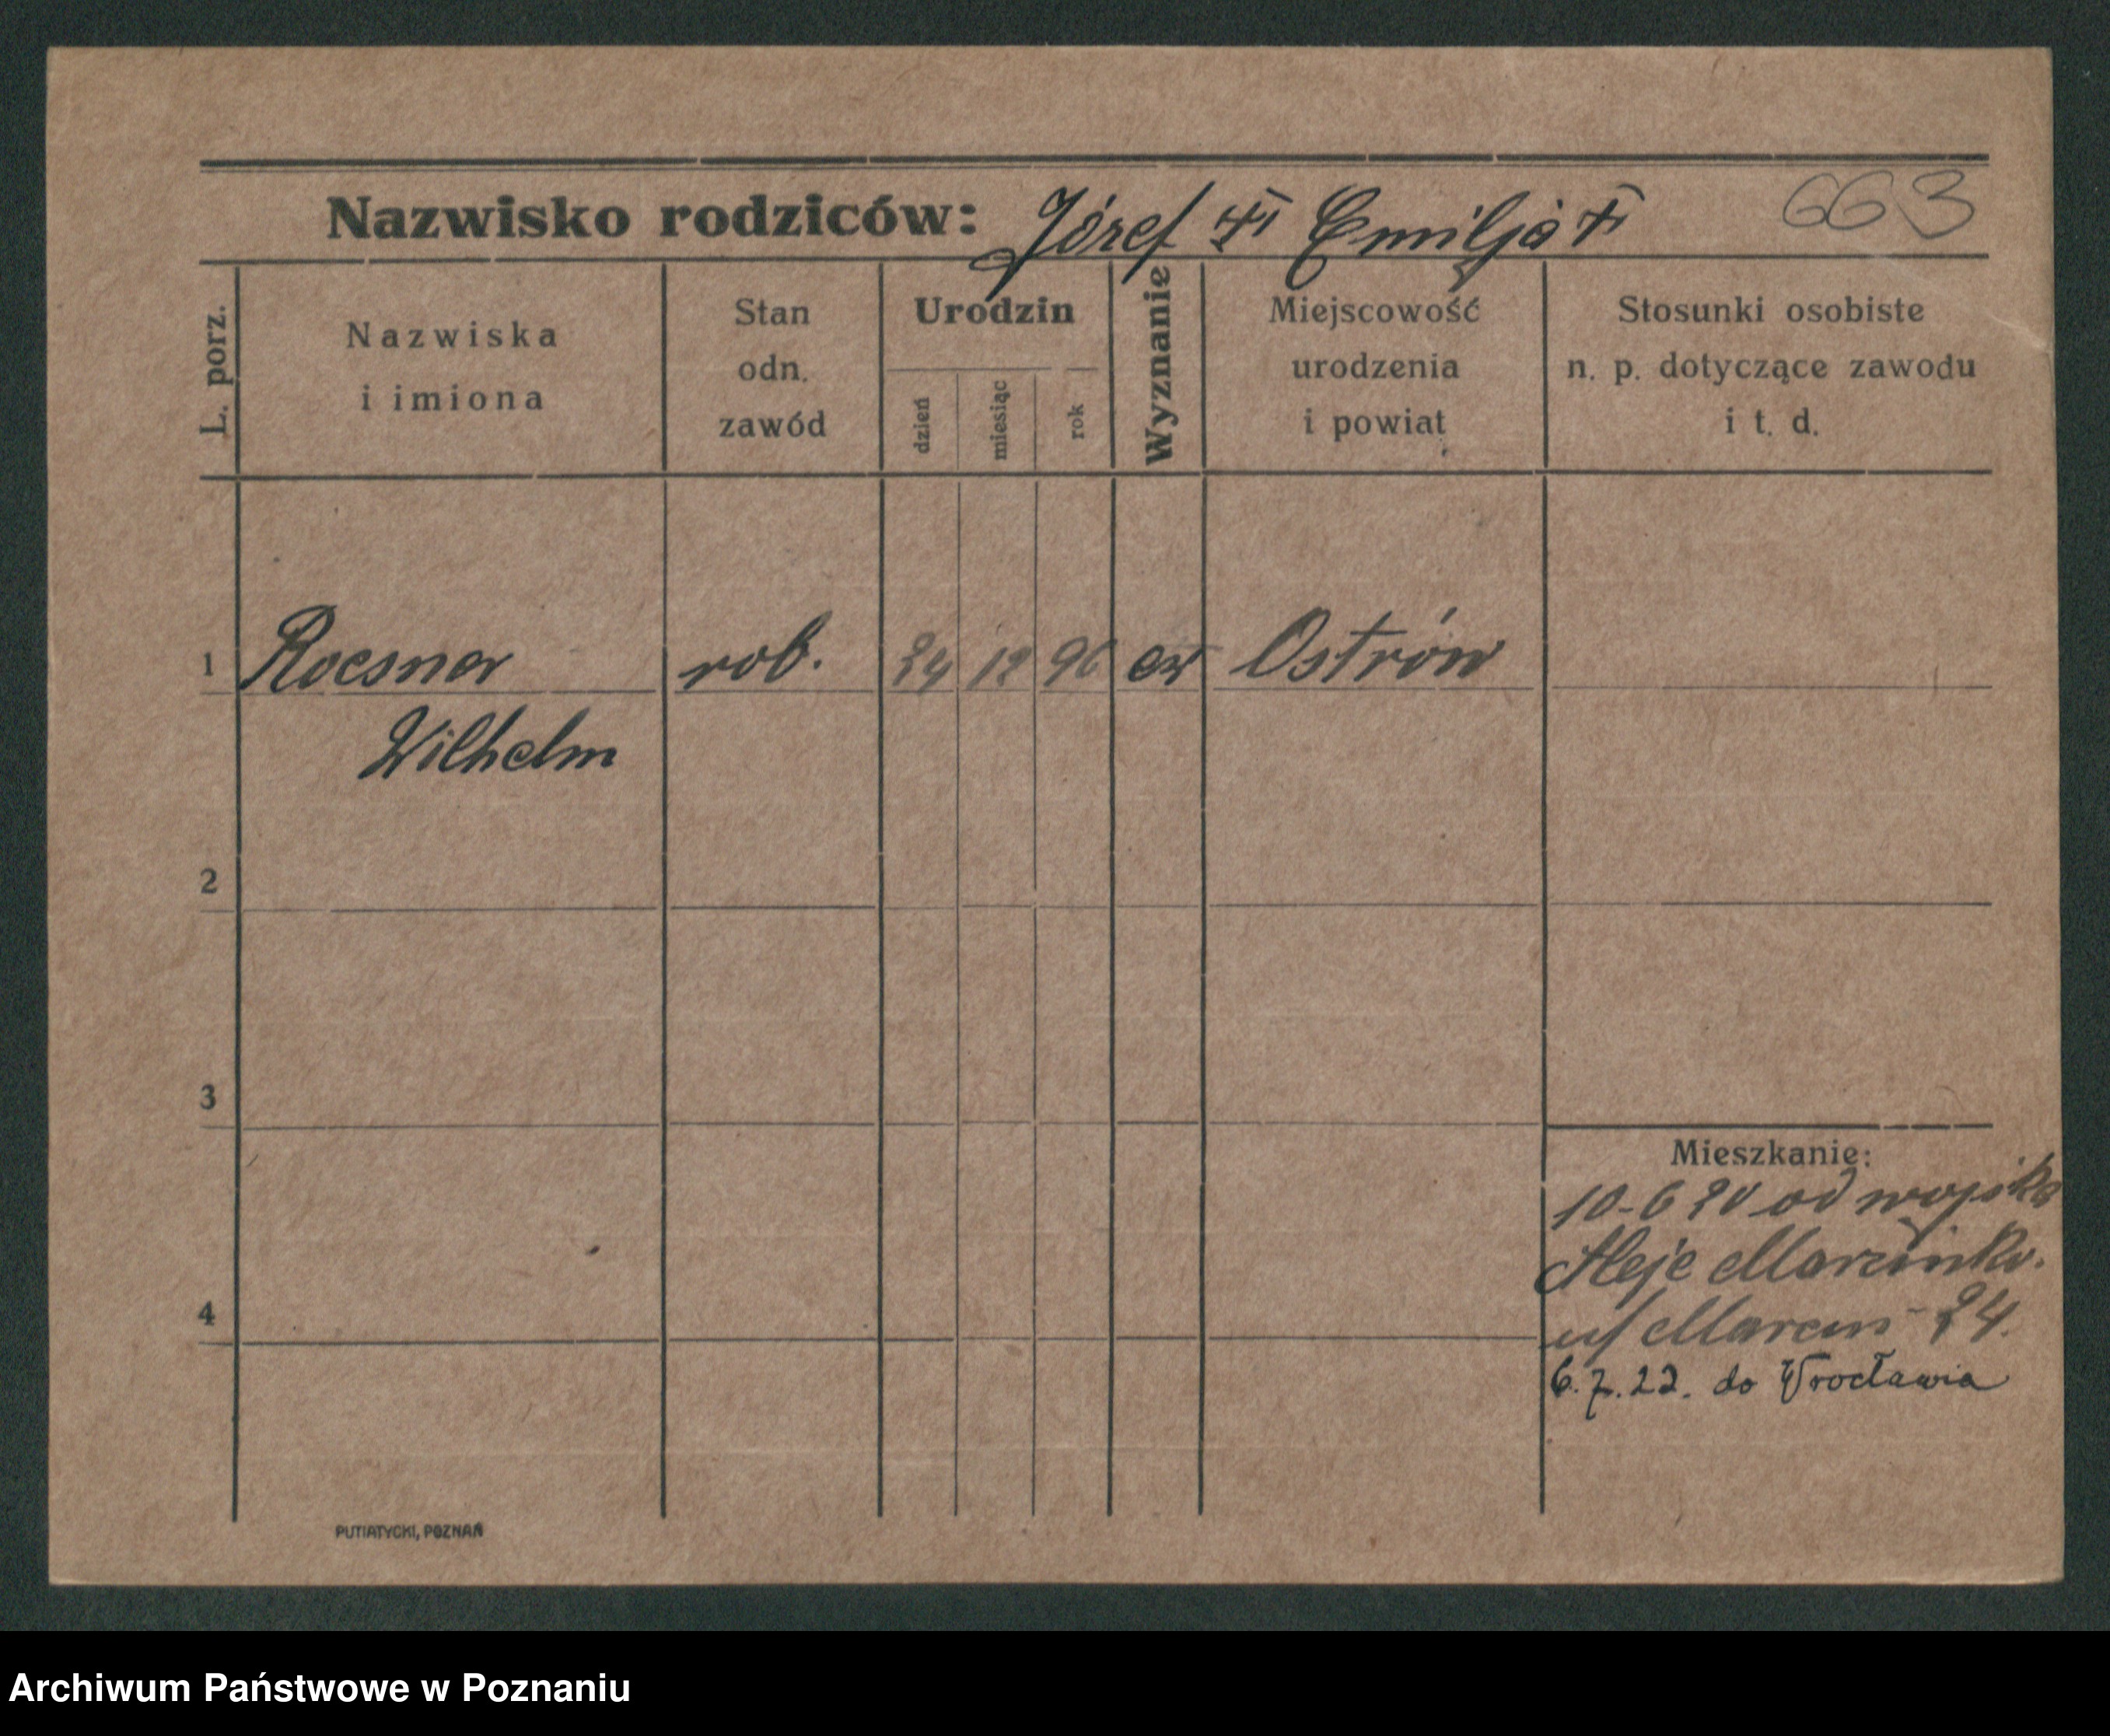 Nazwisko rodziców: Józef Emilja 663
L. porz.
Nazwiska
i imiona
Stan
odn.
zawód
Urodzin
dzień
miesiąc
rok
Wyznanie
Miejscowość
urodzenia
i powiat
Stosunki osobiste
n. p. dotyczące zawodu
i t. d.
1 Roesner rob. 24 12 96 ew Ostrów
Wilhelm
2
3
4
Mieszkanie:
10-6 20 od wojska
Aleje Marcinkw.
Marcin 24.
6.7.22. do Wrocławia
PUTIATYCKI, POZNAŃ
Archiwum Państwowe w Poznaniu